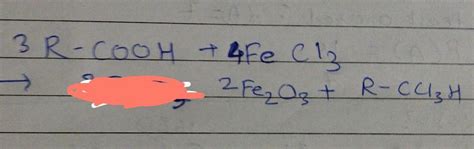 3 R-COOH + 4Fe Cl3
→ 2Fe2O3 + R-CCl3H